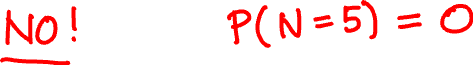 NO! P(N=5) = 0